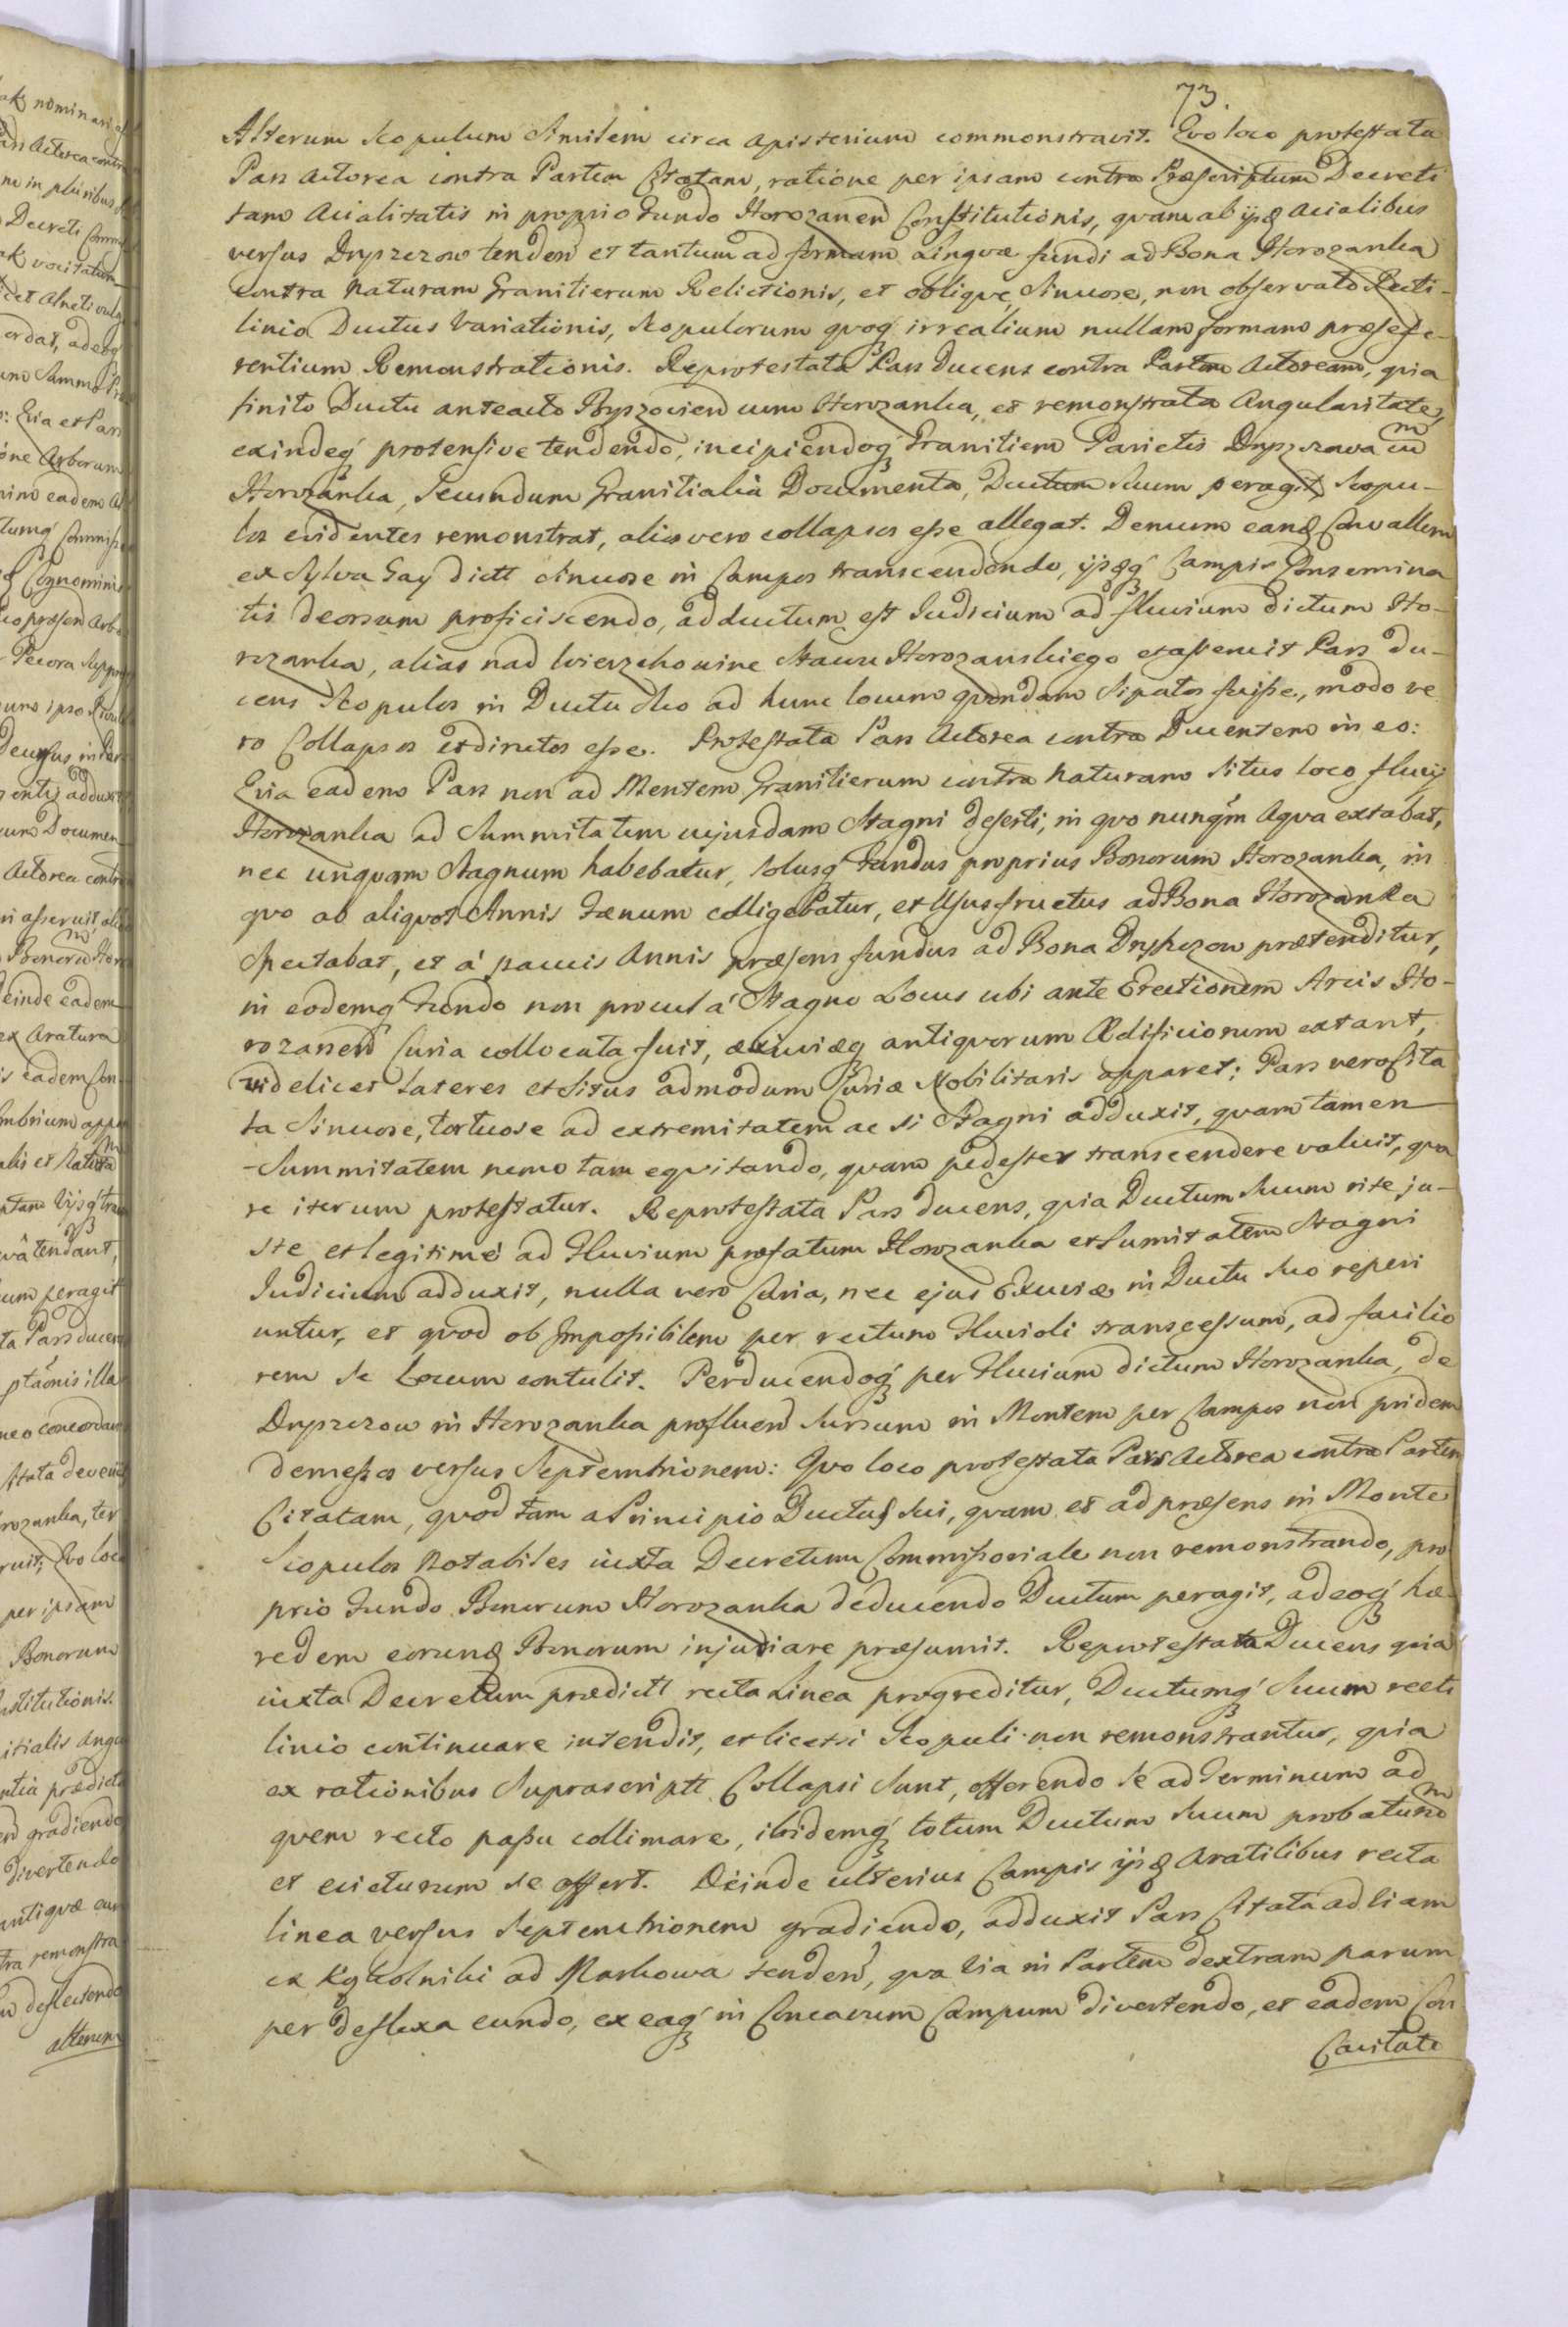 73.
Alterum Scopulum Similem circa apisterium commonstravit. Qvo loco protestata
Pars Actorea contra Partem Citatam, ratione per ipsam contra Præscriptum Decreti
tam Acialitatis in proprio Fundo Horozaneñ Constitutionis, qvam ab ijsd Acialibus
versus Dryszczow tendeñ et tantum ad formam Lingvæ fundi ad Bona Horozanka
contra Naturam Granitierum Relictionis, et obliqve, Sinuose, non observato Recti-
linio Ductus Variationis, Scopulorum qvoq́ irrealium nullam formam præsefe-
rentium Remonstrationis. Reprotestata Pars Ducens contra Partem Actoream, qvia
finito Ductu anteacto Byszovieñ cum Horozanka, et remonstrata Angularitate,
exindeq́ protensive tendendo, incipiendoq́ Granitiem Parietis Dryszczowa cum
Horozanka, Secundum Granitialia Documenta, Ductum Suum peragit, Scopu-
los evidentes remonstrat, alios vero collapsos esse allegat. Demum eand Convallem
ex Sylva Gay dictt Sinuose in Campos transcendendo, ijsdq́ Campis Consemina
tis deorsum proficiscendo, adductum est Judicium ad fluvium dictum Ho-
rozanka, alias nad Wierzchowine Stawu Horozanskiego et asseruit Pars Du-
cens Scopulos in Ductu Suo ad hunc locum qvondam Sipatos fuisse, modo ve
ro Collapsos et dirutos esse. Protestata Pars Actorea contra Ducentem in eo:
Qvia eadem Pars non ad Mentem Granitierum contra Naturam Situs loco fluvij
Horozanka ad Summitatem cujusdam Stagni deserti, in qvo nunqm̃ Aqva extabat,
nec unqvam Stagnum habebatur, Solusq́ Fundus proprius Bonorum Horozanka, in
qvo ab aliqvot Annis Fænum colligebatur, et Ususfructus ad Bona Horozanka
Spectabat, et á paucis Annis præsens fundus ad Bona Dryszczow prætenditur,
in eodemq́ Fundo non procul á Stagno Locus ubi ante Erectionem Arcis Ho-
rozaneñ Curia collocata fuit, exuviæq antiqvorum Ædificiorum extant,
videlicet Lateres et Situs admodum Curiæ Nobilitaris apparet; Pars vero Cita
ta Sinuose, tortuose ad extremitatem ac si Stagni adduxit, qvam tamen
Summitatem nemo tam eqvitando, qvam pedester transcendere valuit, qva
re iterum protestatur. Reprotestata Pars ducens, qvia Ductum Suum rite ju-
ste et legitimé ad Fluvium præfatum Horozanka et Sumitatem Stagni
Judicium adduxit, nulla vero Curia, nec ejus Exuviæ in Ductu Suo reperi
untur, et qvod ob Impossibilem per rectum Fluvioli transcessum, ad facilio
rem Se Locum contulit. Perducendoq́ per Fluvium dictum Horozanka, de
Dryszczow in Horozanka proflueñ Sursum in Montem per Campos non pridem
demessos versus Septemtrionem: Qvo loco protestata Pars Actorea contra Partem
Citatam, qvod tam a Principio Ductus Sui, qvam et ad præsens in Monte
Scopulos Notabiles iuxta Decretum Commissoriale non remonstrando, pro
prio Fundo Bonorum Horozanka deducendo Ductum peragit, adeoq́ hæ-
redem eorund Bonorum injuriare præsumit. Reprotestata Ducens qvia
iuxta Decretum prædictt recta Linea progreditur, Ductumq́ Suum recti
linio continuare intendit, et licet si Scopuli non remonstrantur, qvia
ex rationibus Suprascriptt Collapsi Sunt, offerendo Se ad Terminum ad
qvem recto passu collimare, ibidemq́ totum Ductum Suum probaturum
et evicturum se offert. Deinde ulterius Campis ijsd Aratilibus recta
linea versus Septemtrionem gradiendo, adduxit Pars Citata ad Viam
ex ad Markowa tendeñ, qva Via in Partem dextram parum
per deflexa eundo, ex eaq́ in Concavum Campum divertendo, et eadem Con
Cavitate